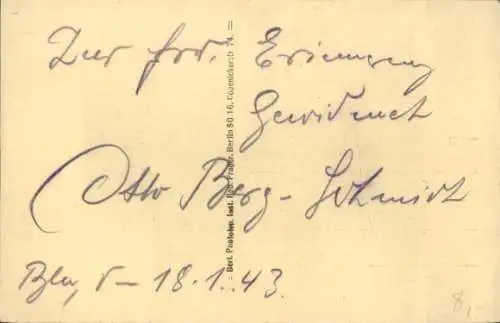 Zur frd. Erinnerung
Gewidmet
Otto Berg-Schmidt
Bln, d- 18.1.43.
8,-
Berl. Photohp. Inst. Rud. Prager, Berlin SO 16, Köpenickerstr. 74.